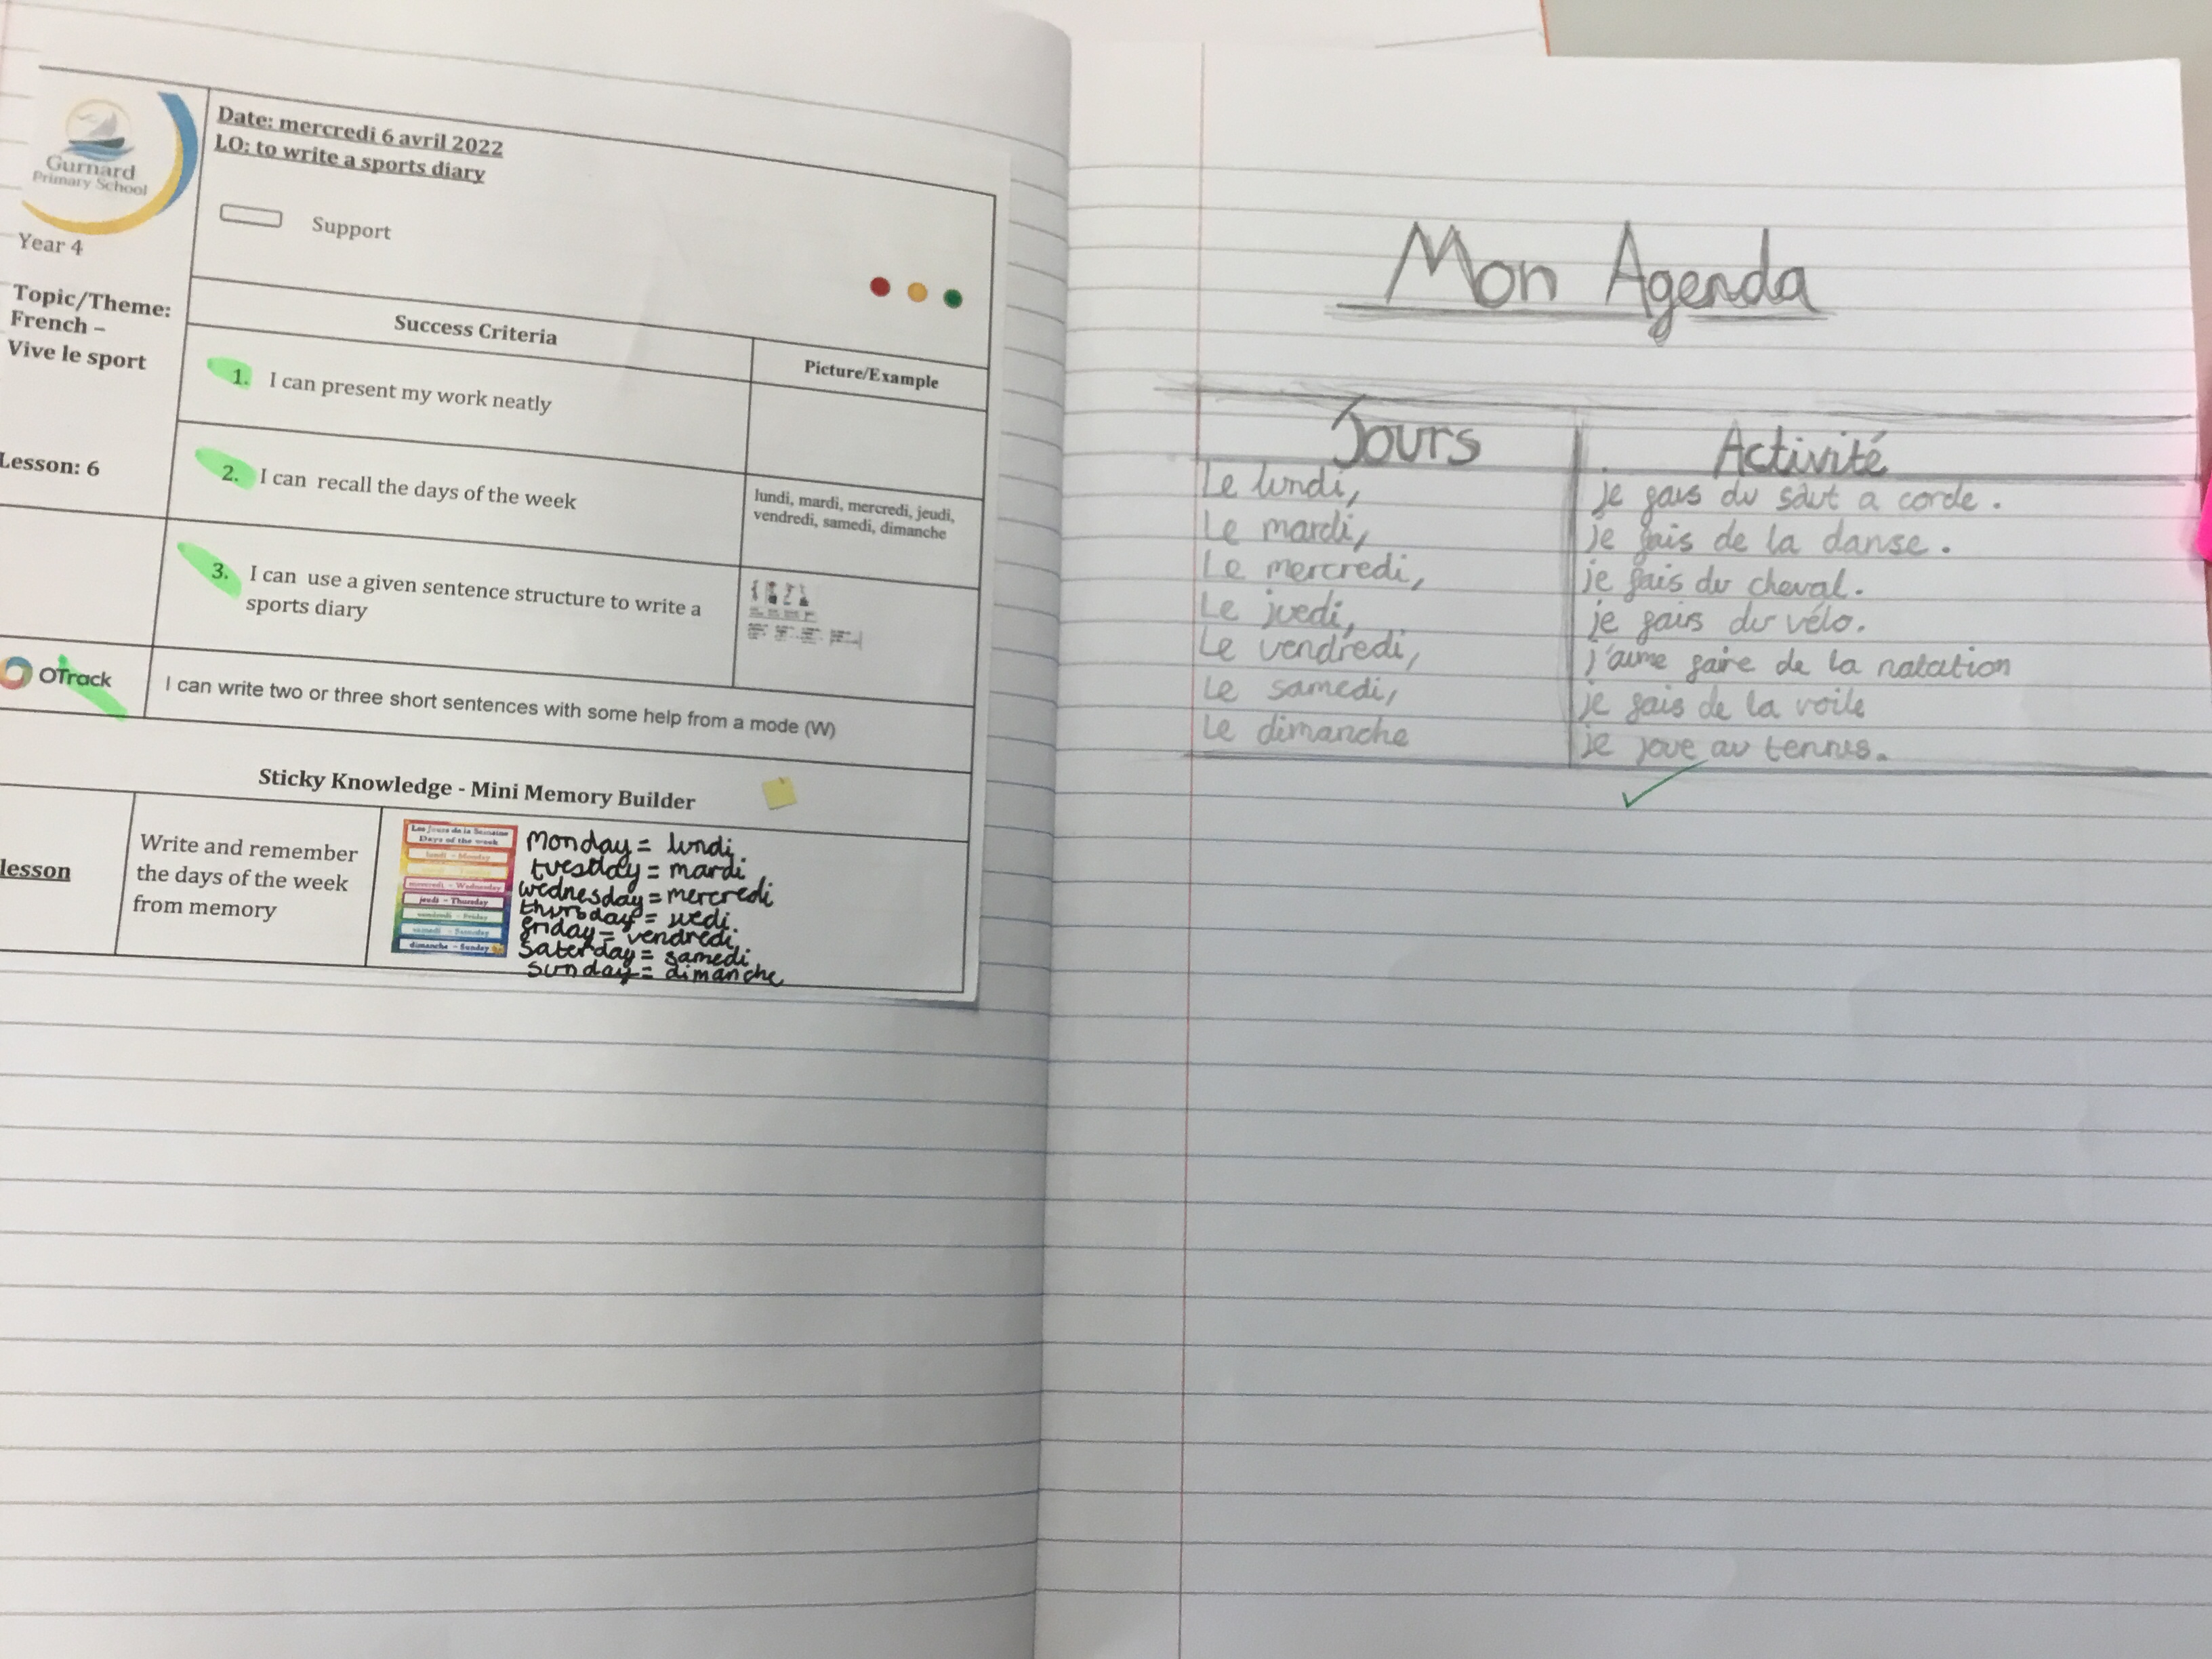 Gurnard
Primary School
Year 4
Topic/Theme:
French –
Vive le sport
Lesson: 6
Date: mercredi 6 avril 2022
LO: to write a sports diary
Support
Success Criteria
Picture/Example
1. I can present my work neatly
2. I can recall the days of the week
lundi, mardi, mercredi, jeudi,
vendredi, samedi, dimanche
3. I can use a given sentence structure to write a
sports diary
OTrack
I can write two or three short sentences with some help from a mode (W)
Sticky Knowledge - Mini Memory Builder
lesson
Write and remember
the days of the week
from memory
Les Jours de la Semaine
Days of the week
lundi - Monday
mercredi - Wednesday
jeudi - Thursday
vendredi - Friday
samedi - Saturday
dimanche - Sunday
Monday = lundi.
tuesday = mardi.
wednesday = mercredi
thursday = juedi.
friday = vendredi,
Saterday = samedi
sunday = dimanche
Mon Agenda
Jours Activité
Le lundi, je fais du saut a corde.
Le mardi, je fais de la danse.
Le mercredi, je fais du cheval.
Le juedi, je fais du vélo.
Le vendredi, j'aime faire de la natation
Le samedi, je fais de la voile
Le dimanche je joue au tennis.